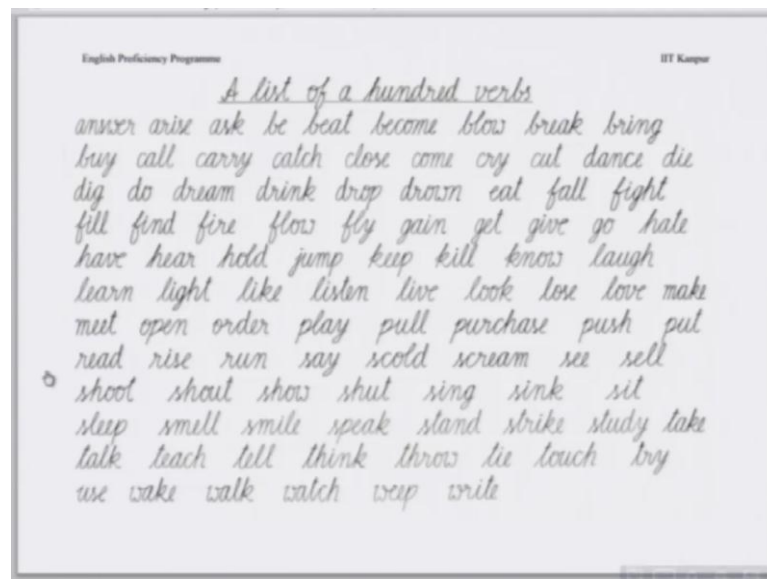 English Proficiency Programme IIT Kanpur
A list of a hundred verbs
answer arise ask be beat become blow break bring
buy call carry catch close come cry cut dance die
dig do dream drink drop drown eat fall fight
fill find fire flow fly gain get give go hate
have hear hold jump keep kill know laugh
learn light like listen live look lose love make
meet open order play pull purchase push put
read rise run say scold scream see sell
shoot shout show shut sing sink sit
sleep smell smile speak stand strike study take
talk teach tell think throw tie touch try
use wake walk watch weep write